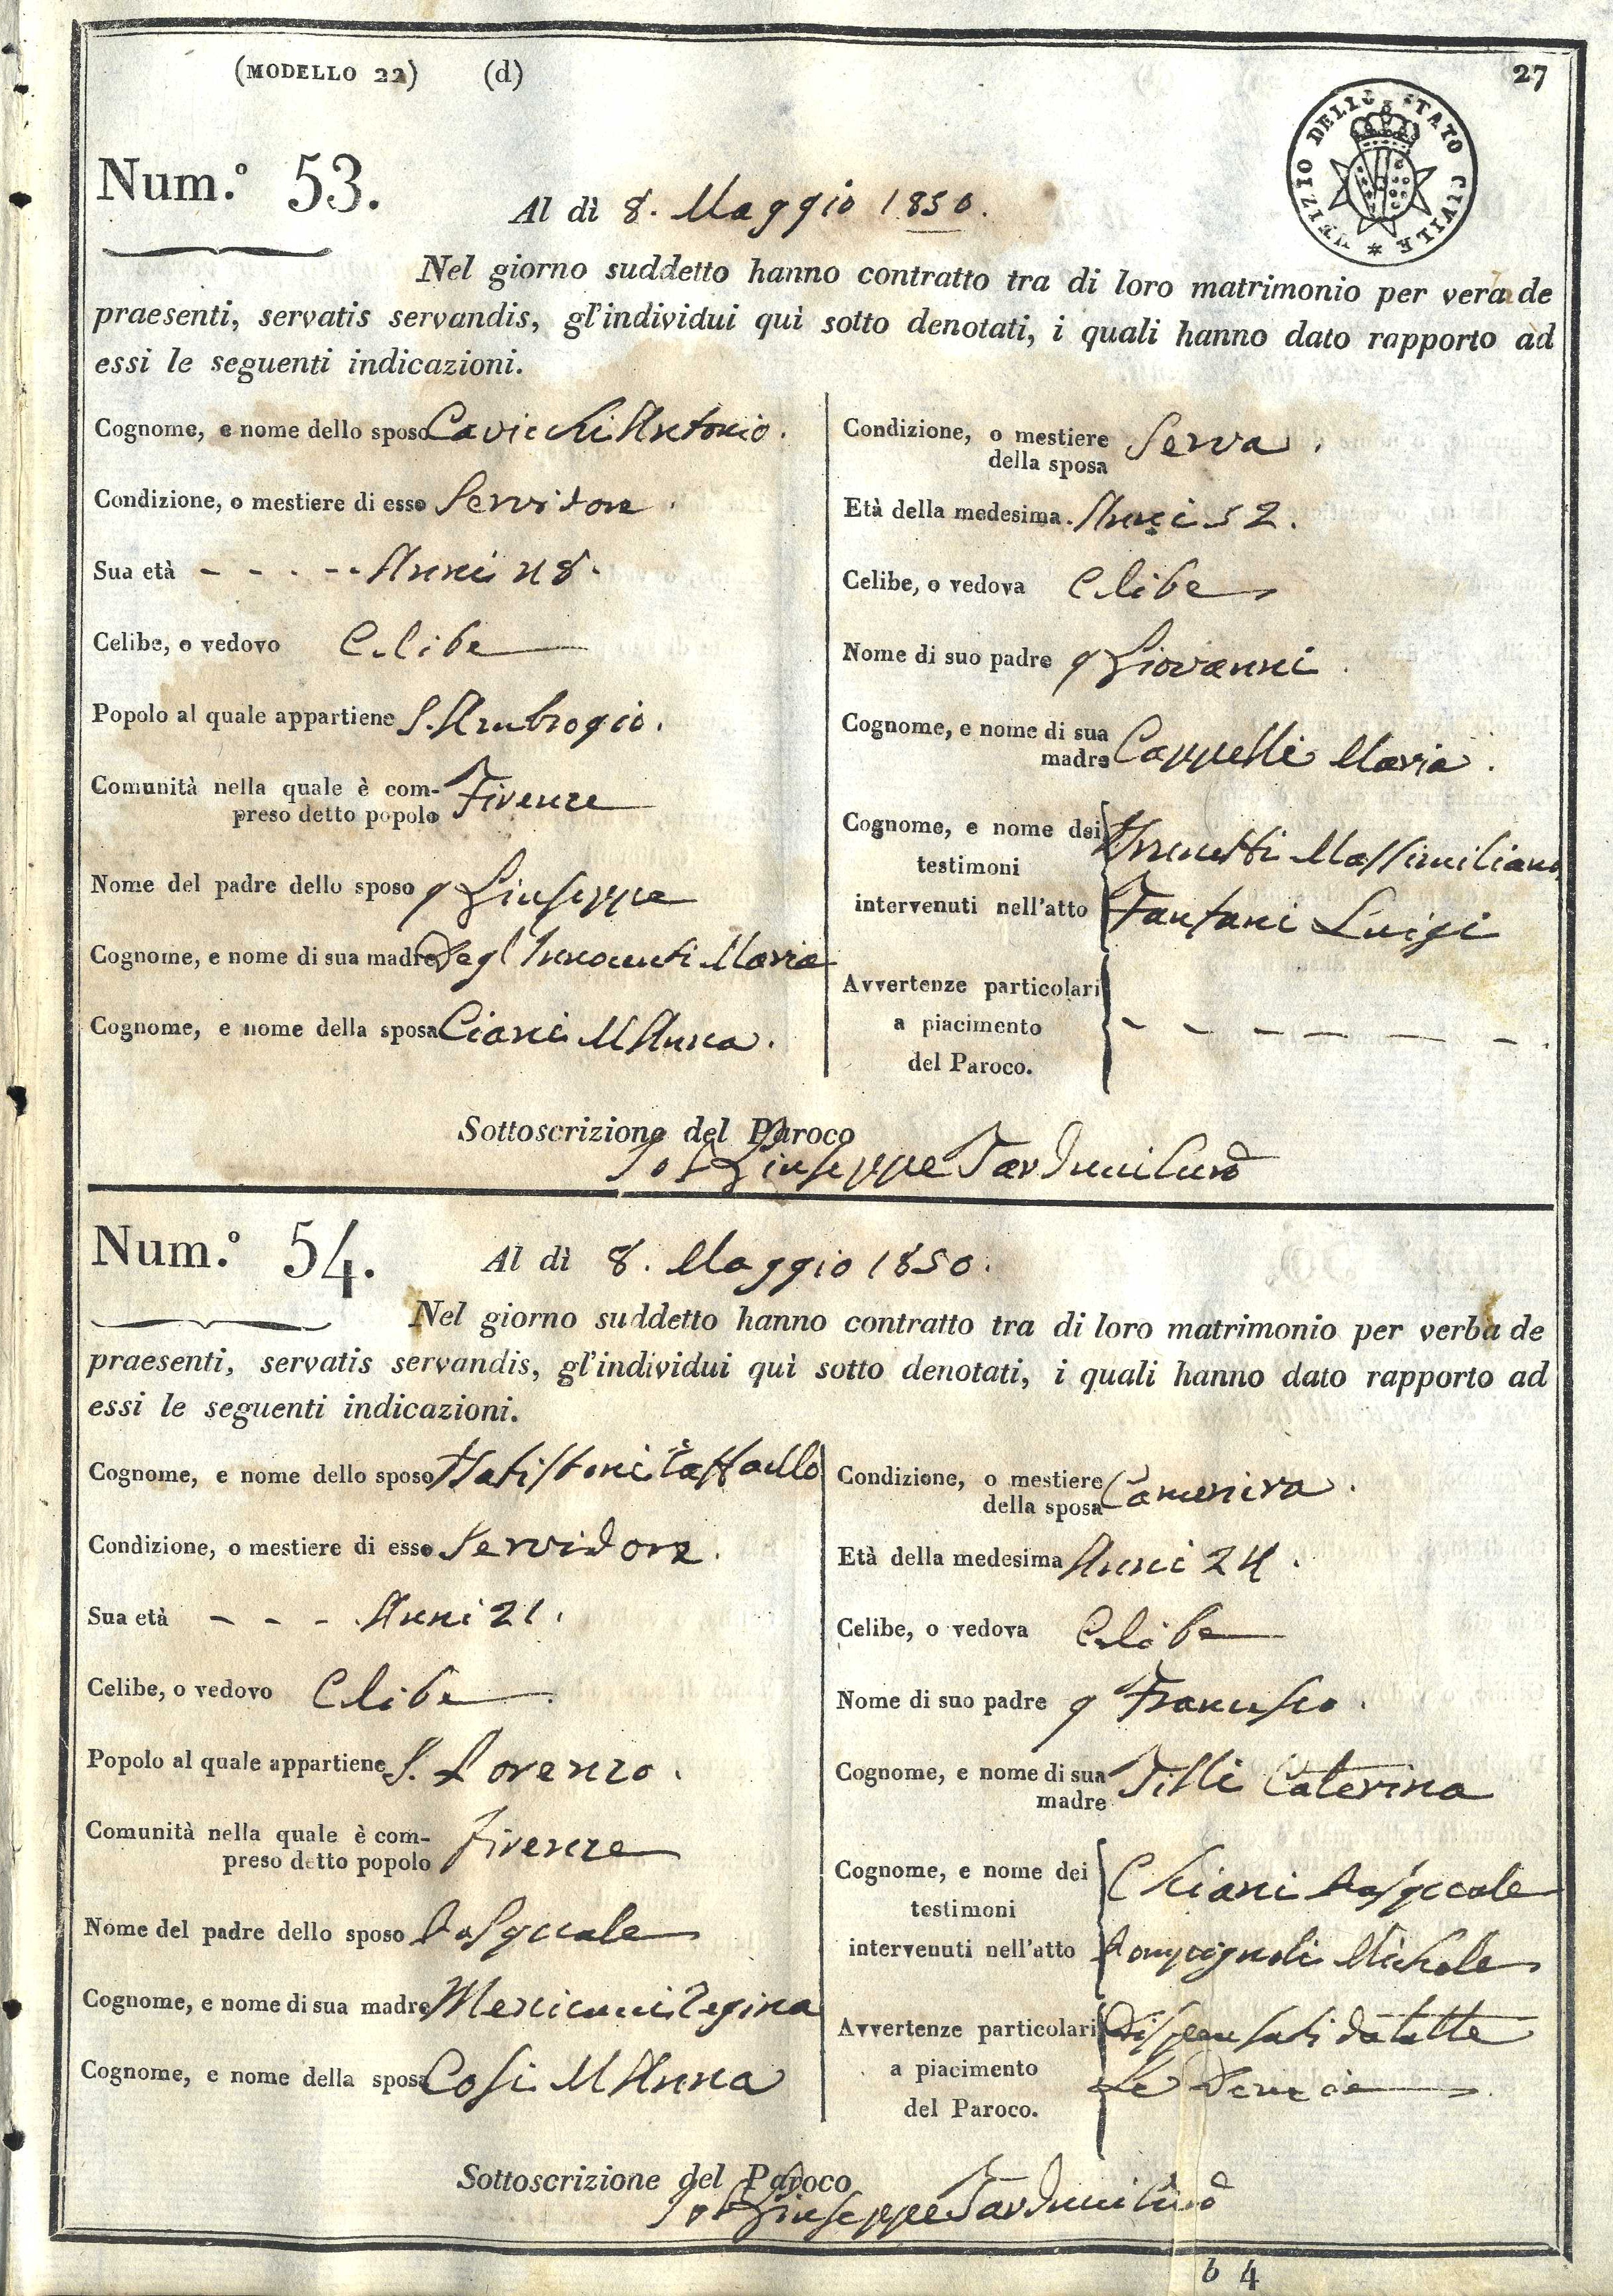 (MODELLO 22) (d) 27
UFIZIO DELLO STATO CIVILE *
Num.º 53.
Al dì 8. Maggio 1850.
Nel giorno suddetto hanno contratto tra di loro matrimonio per verba de
praesenti, servatis servandis, gl'individui quì sotto denotati, i quali hanno dato rapporto ad
essi le seguenti indicazioni.
Cognome, e nome dello sposo Cavicchi Antonio.
Condizione, o mestiere di esso Servitore.
Sua età - - - - - Anni 48.
Celibe, o vedovo Celibe
Popolo al quale appartiene S. Ambrogio.
Comunità nella quale è com-
preso detto popolo Firenze
Nome del padre dello sposo q Giuseppe
Cognome, e nome di sua madre Degl'Innocenti Maria
Cognome, e nome della sposa Ciani M Anna.
Condizione, o mestiere
della sposa Serva.
Età della medesima. Anni 52.
Celibe, o vedova Celibe
Nome di suo padre q Giovanni
Cognome, e nome di sua
madre Cappelli Maria.
Cognome, e nome dei
testimoni Massimiliano
intervenuti nell'atto Fantani Luigi
Avvertenze particolari
a piacimento - - - - - - -
del Paroco.
Sottoscrizione del Paroco
Giuseppe
Num.º 54.
Al dì 8. Maggio 1850.
Nel giorno suddetto hanno contratto tra di loro matrimonio per verba de
praesenti, servatis servandis, gl'individui quì sotto denotati, i quali hanno dato rapporto ad
essi le seguenti indicazioni.
Cognome, e nome dello sposo Batistoni Raffaello
Condizione, o mestiere di esso Servidore.
Sua età - - - Anni 21.
Celibe, o vedovo Celibe
Popolo al quale appartiene S. Lorenzo.
Comunità nella quale è com-
preso detto popolo Firenze
Nome del padre dello sposo Pasquale
Cognome, e nome di sua madre Menicucci Regina
Cognome, e nome della sposa Cosi M Anna
Condizione, o mestiere
della sposa Cameriera.
Età della medesima Anni 24.
Celibe, o vedova Celibe
Nome di suo padre q Francesco.
Cognome, e nome di sua
madre Tilli Caterina
Cognome, e nome dei
testimoni Chiani Pasquale
intervenuti nell'atto Pompignoli Michele
Avvertenze particolari Dispensati da tutte
a piacimento Le Denunzie
del Paroco.
Sottoscrizione del Paroco
Giuseppe
b 4